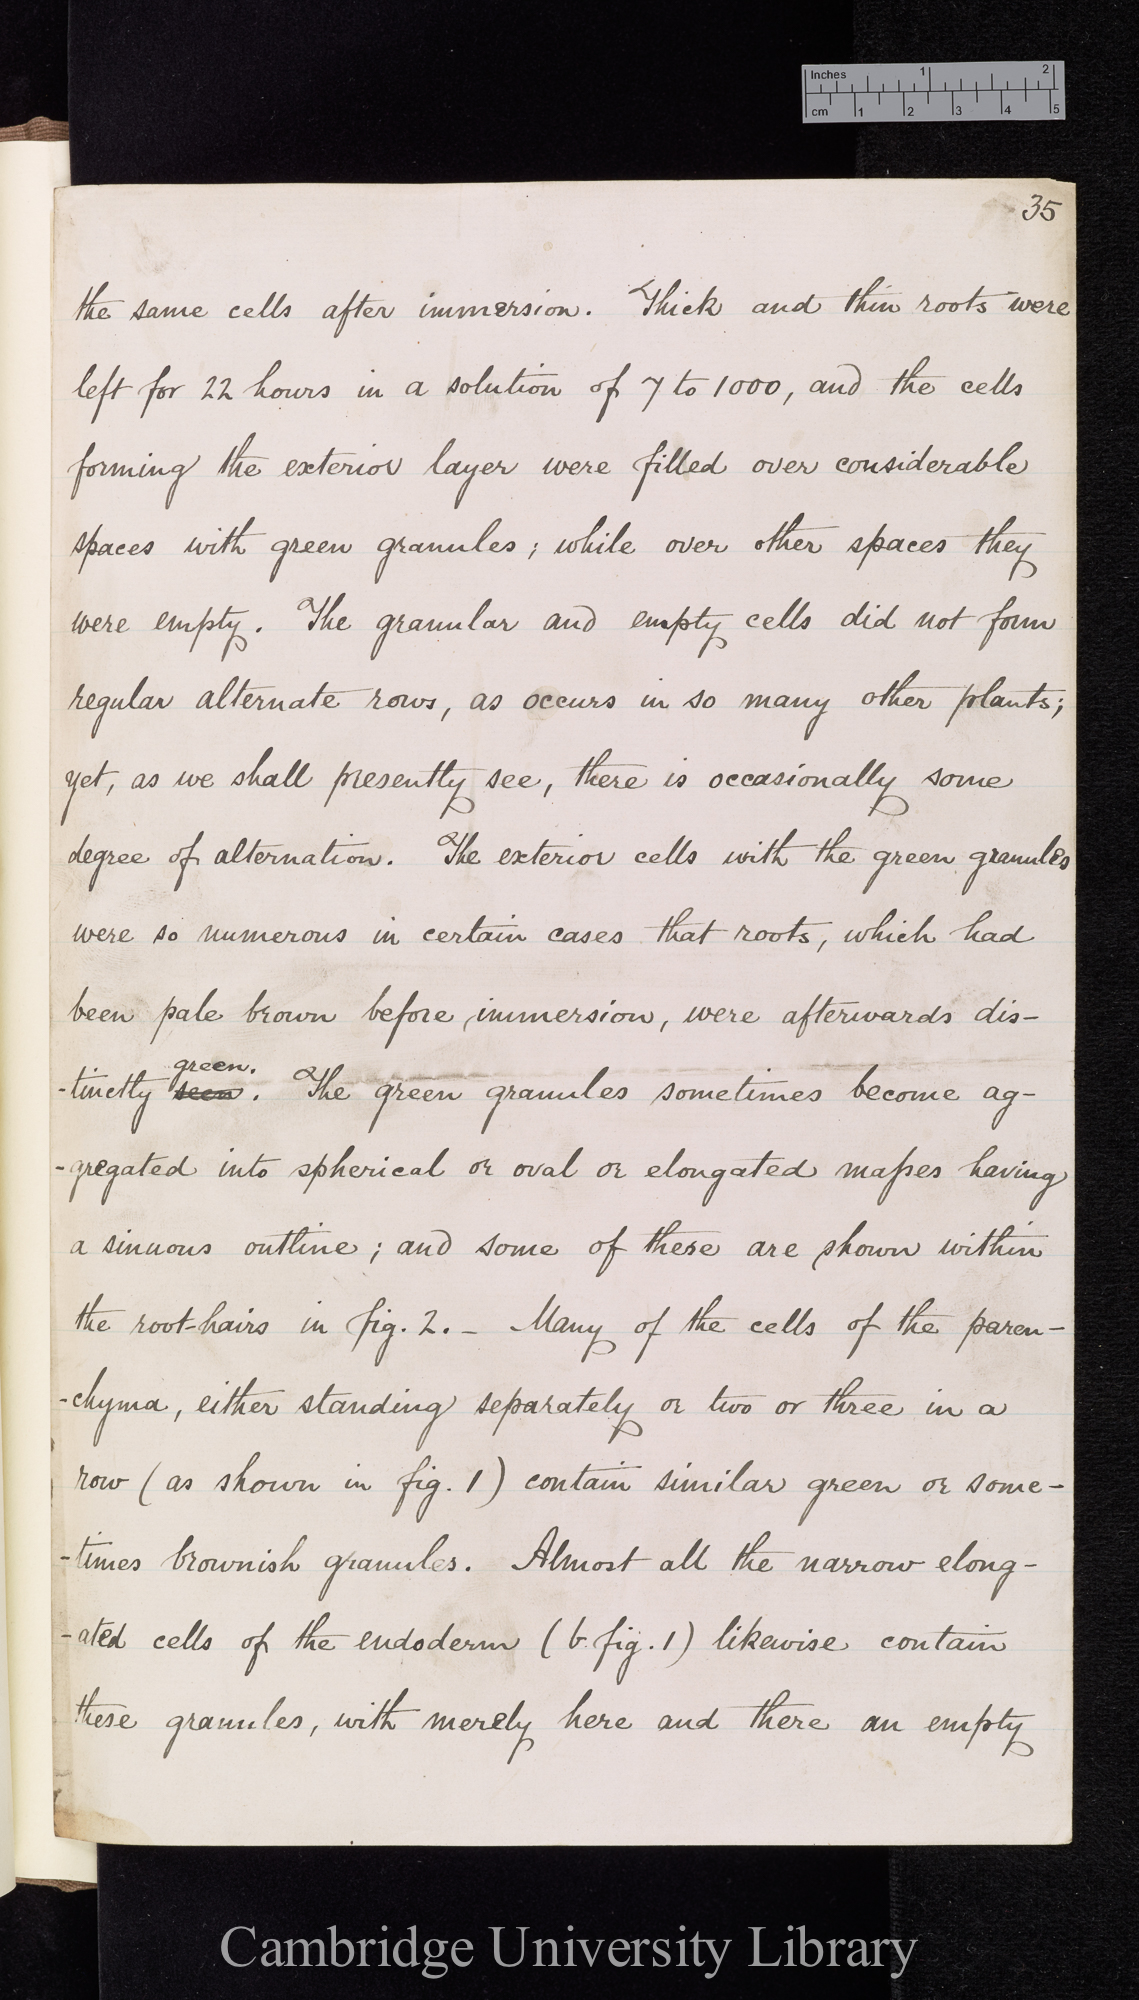 Inches 1 2
cm 1 2 3 4 5
35
the same cells after immersion. Thick and thin roots were
left for 22 hours in a solution of 7 to 1000, and the cells
forming the exterior layer were filled over considerable
spaces with green granules; while over other spaces they
were empty. The granular and empty cells did not form
regular alternate rows, as occurs in so many other plants;
yet, as we shall presently see, there is occasionally some
degree of alternation. The exterior cells with the green granules
were so numerous in certain cases that roots, which had
been pale brown before immersion, were afterwards dis-
green.
-tinctly seen. The green granules sometimes become ag-
-gregated into spherical or oval or elongated maſses having
a sinuous outline; and some of these are shown within
the root-hairs in fig. 2. – Many of the cells of the paren-
-chyma, either standing separately or two or three in a
row (as shown in fig. 1) contain similar green or some-
-times brownish granules. Almost all the narrow elong-
-ated cells of the endoderm (b. fig. 1) likewise contain
these granules, with merely here and there an empty
Cambridge University Library